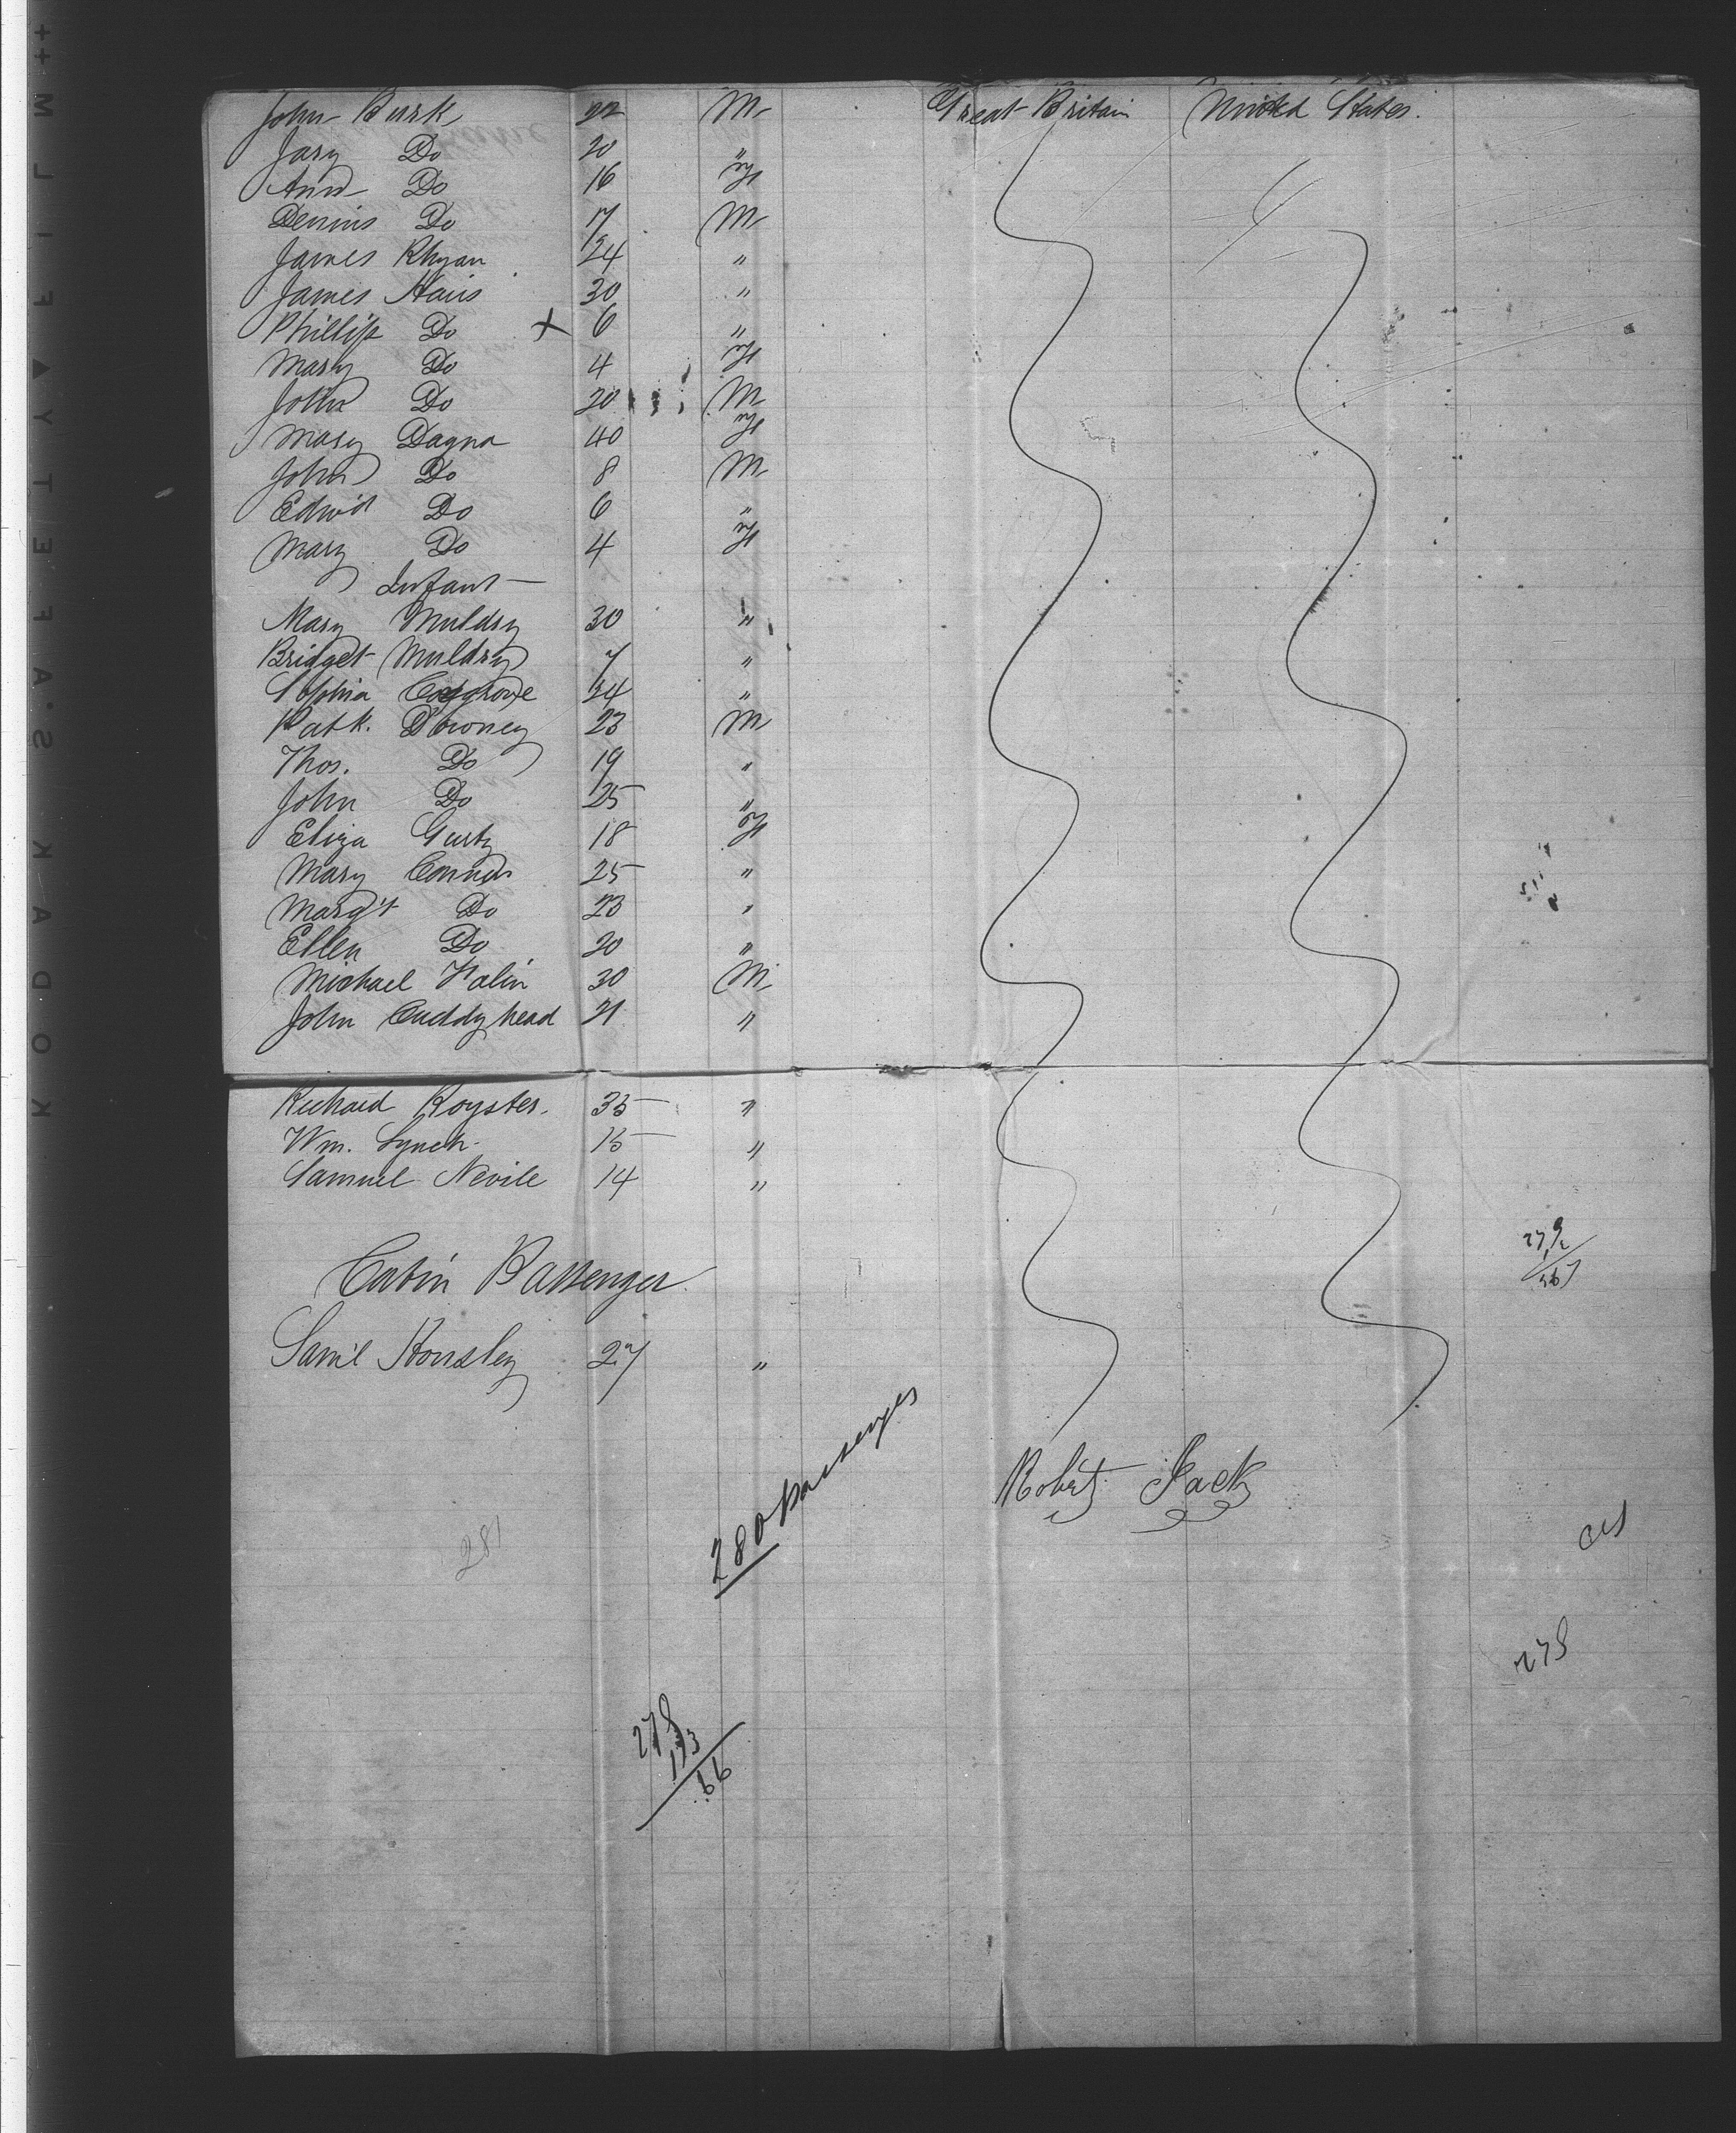 John Burk 22 M Great Britain United States.
Jary Do 20 "
Ann Do 16 F
Dennis Do 17 M
James Rhyan 24 "
James Hais 30 "
Phillip Do X 6 "
Mary Do 4 F
John Do 20 M
Mary Dagna 40 F
John Do 8 M
Edwd Do 6 "
Mary Do 4 F
Infant —
Mary Muldry 30 "
Bridget Muldry 7 "
Sophia Cosgrove 24 "
Patk. Downey 23 M
Thos. Do 19 "
John Do 25 "
Eliza Gurty 18 F
Mary Connor 25 "
Margt Do 23 "
Ellen Do 20 "
Michael Halin 30 M
John Cuddyhead 21 "
Richard Royster. 35 "
Wm. Lynch 15 "
Samuel Nevile 14 "
Cabin Passenger
Saml Housley 27 "
280 passenges
Robert Jack
281
278
278
113
66
KODAK SAFETY FILM ++